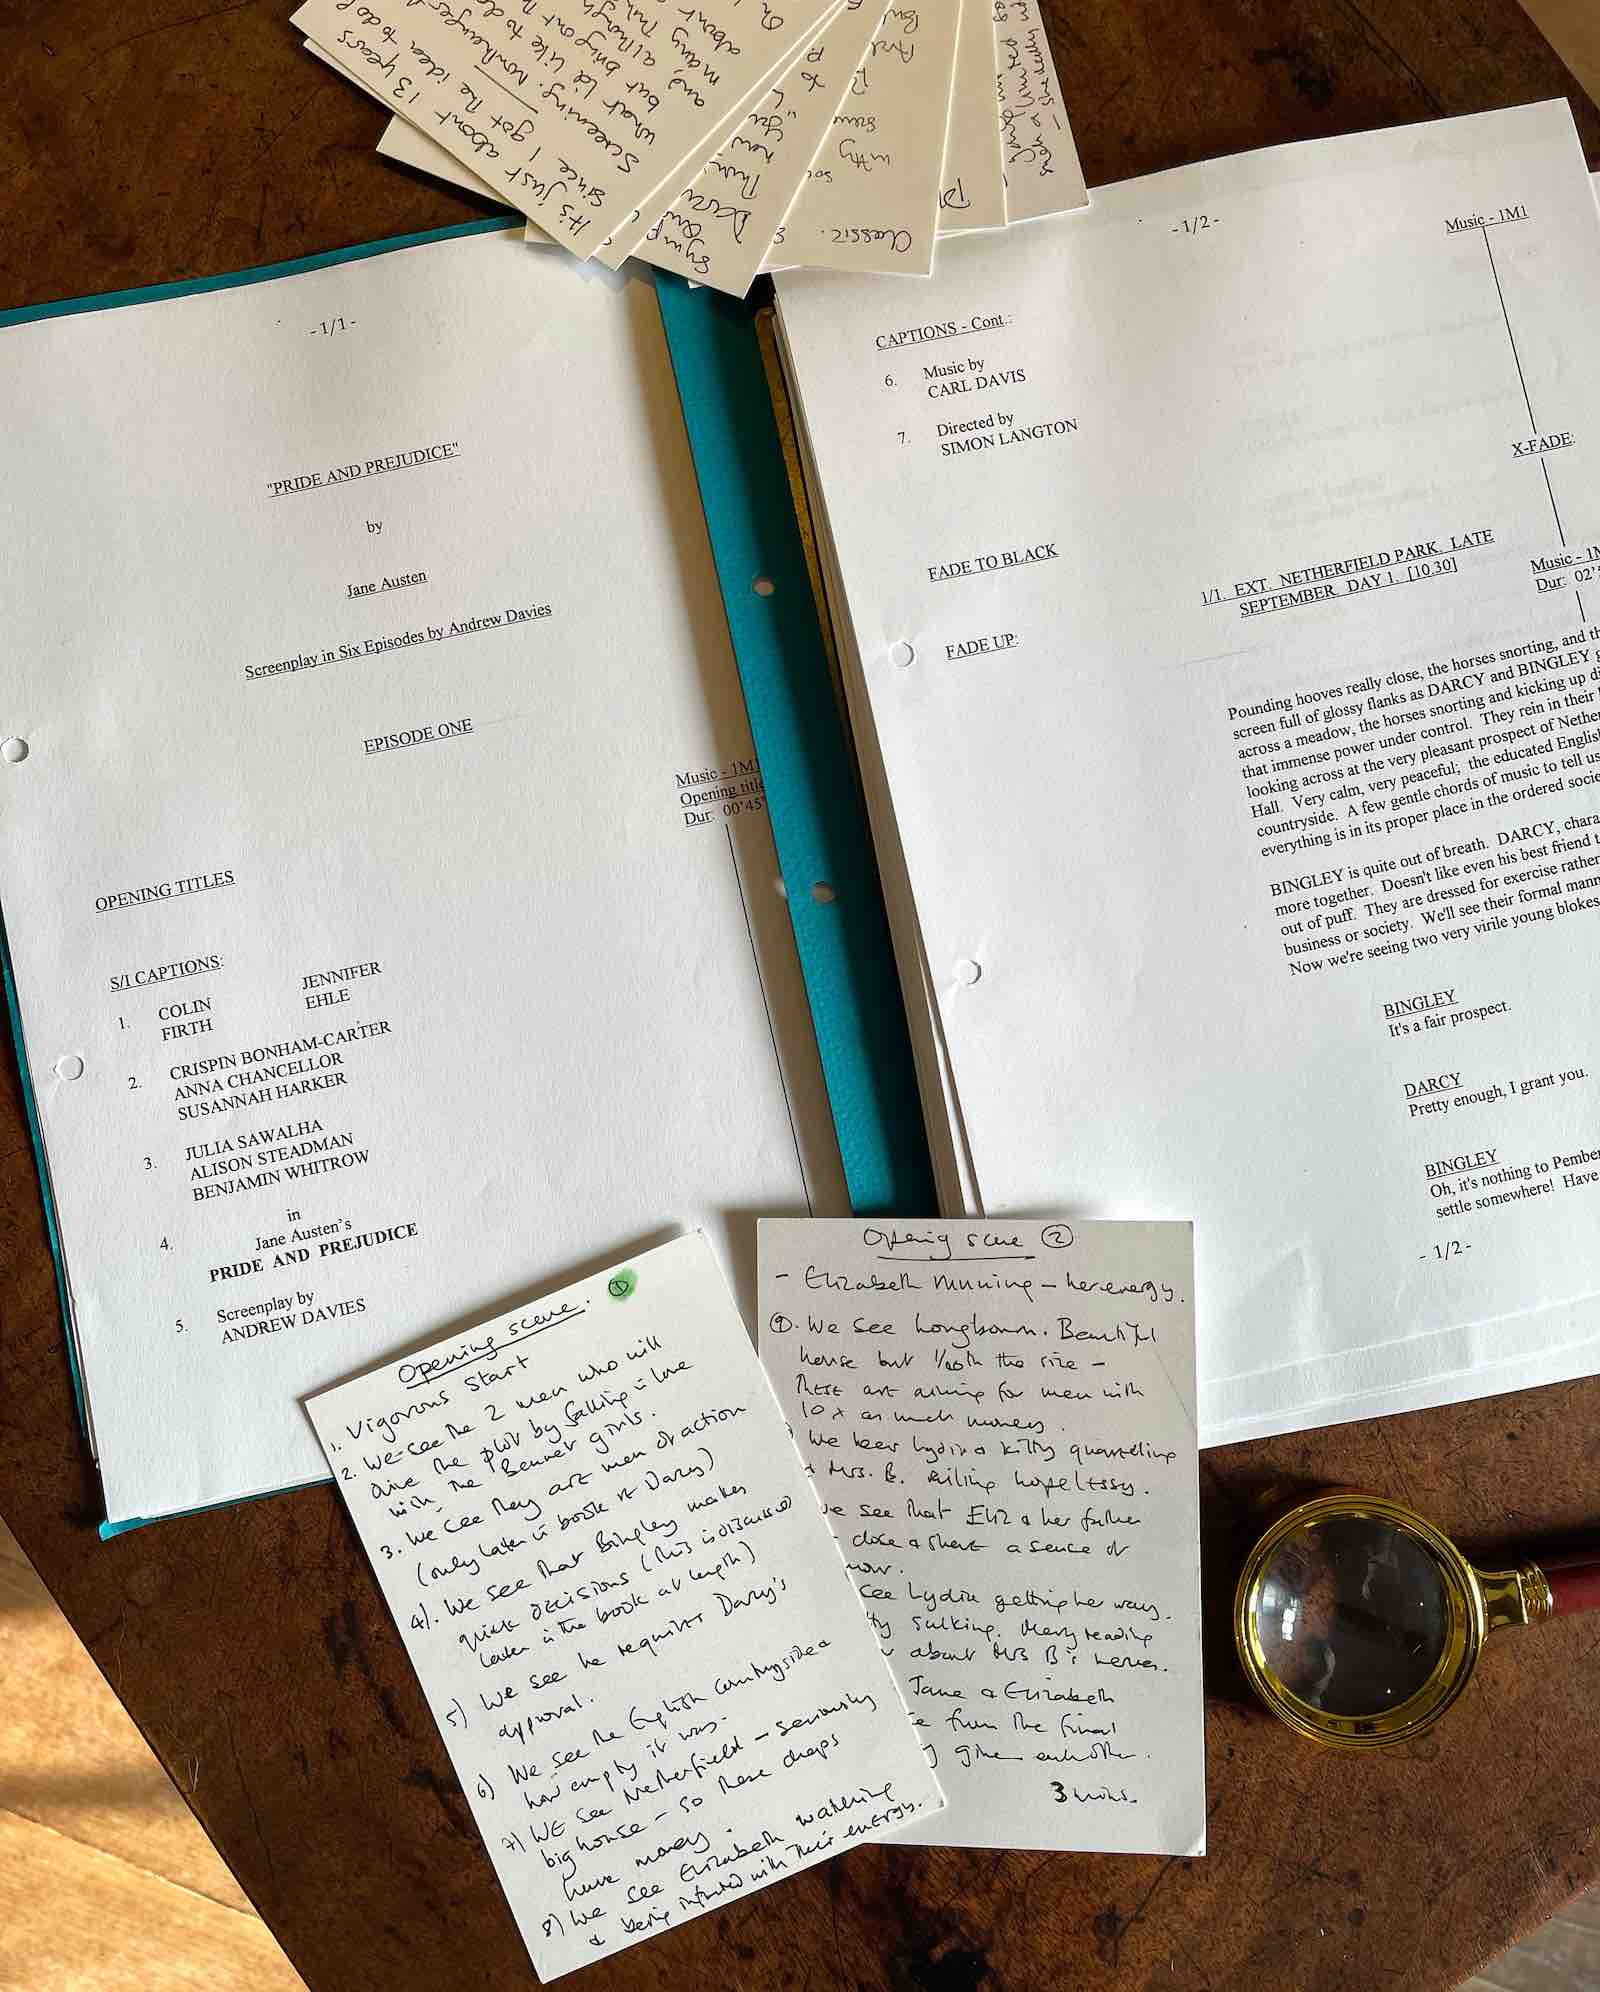 It's just about 13 years
since I got the idea to do
screening. Northanger
what I'd like to do
but bring out
and, although
many
about
Classic.
-1/1-
"PRIDE AND PREJUDICE"
by
Jane Austen
Screenplay in Six Episodes by Andrew Davies
EPISODE ONE
Music - 1M1
Opening title
Dur: 00'45"
OPENING TITLES
S/I CAPTIONS:
1. COLIN JENNIFER
FIRTH EHLE
2. CRISPIN BONHAM-CARTER
ANNA CHANCELLOR
SUSANNAH HARKER
3. JULIA SAWALHA
ALISON STEADMAN
BENJAMIN WHITROW
in
4. Jane Austen's
PRIDE AND PREJUDICE
5. Screenplay by
ANDREW DAVIES
-1/2-
Music - 1M1
CAPTIONS - Cont.:
6. Music by
CARL DAVIS
7. Directed by
SIMON LANGTON
X-FADE:
FADE TO BLACK
1/1. EXT. NETHERFIELD PARK. LATE
SEPTEMBER. DAY 1. [10.30]
Music - 1M
Dur: 02'
FADE UP:
Pounding hooves really close, the horses snorting, and th
screen full of glossy flanks as DARCY and BINGLEY g
across a meadow, the horses snorting and kicking up di
that immense power under control. They rein in their
looking across at the very pleasant prospect of Nether
Hall. Very calm, very peaceful; the educated English
countryside. A few gentle chords of music to tell us
everything is in its proper place in the ordered socie
BINGLEY is quite out of breath. DARCY, chara
more together. Doesn't like even his best friend t
out of puff. They are dressed for exercise rather
business or society. We'll see their formal mann
Now we're seeing two very virile young blokes
BINGLEY
It's a fair prospect.
DARCY
Pretty enough, I grant you.
BINGLEY
Oh, it's nothing to Pember
settle somewhere! Have
- 1/2 -
Opening scene. 1
1. Vigorous start
2. We see the 2 men who will
drive the plot by falling in love
with the Bennet girls.
3. We see they are men of action
(only later in book re Darcy)
4). We see that Bingley makes
quick decisions (this is discussed
later in the book at length)
5) We see he requires Darcy's
approval.
6) We see the English countryside &
how empty it was.
7) WE see Netherfield - seriously
big house - so these chaps
have money.
8) We see Elizabeth watching
& being infected with their energy.
Opening scene 2
- Elizabeth running - her energy.
9. We see Longbourn. Beautiful
house but 1/10th the size -
these are aiming for men with
10 x as much money.
We hear Lydia & Kitty quarrelling
& Mrs. B. railing hopelessly.
we see that Eliz & her father
close & share a sense of
see Lydia getting her way.
sulking. Mary reading
about Mrs B's nerves.
Jane & Elizabeth
from the final
given each other.
3 mins.